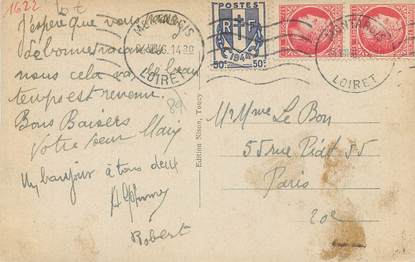 1622
J'espère que vous
de bonne
nous cela va le beau
temps est revenu.
Bons Baisers
Votre sœur Mary
Un bonjour à tous deux
Robert
89
Edition Nison, Toucy
POSTES
RF
1944
50c 50c
MONTARGIS
LOIRET
MONTARGIS
LOIRET
Mr Mme Le Bon
55 rue Piat 55
Paris
20e